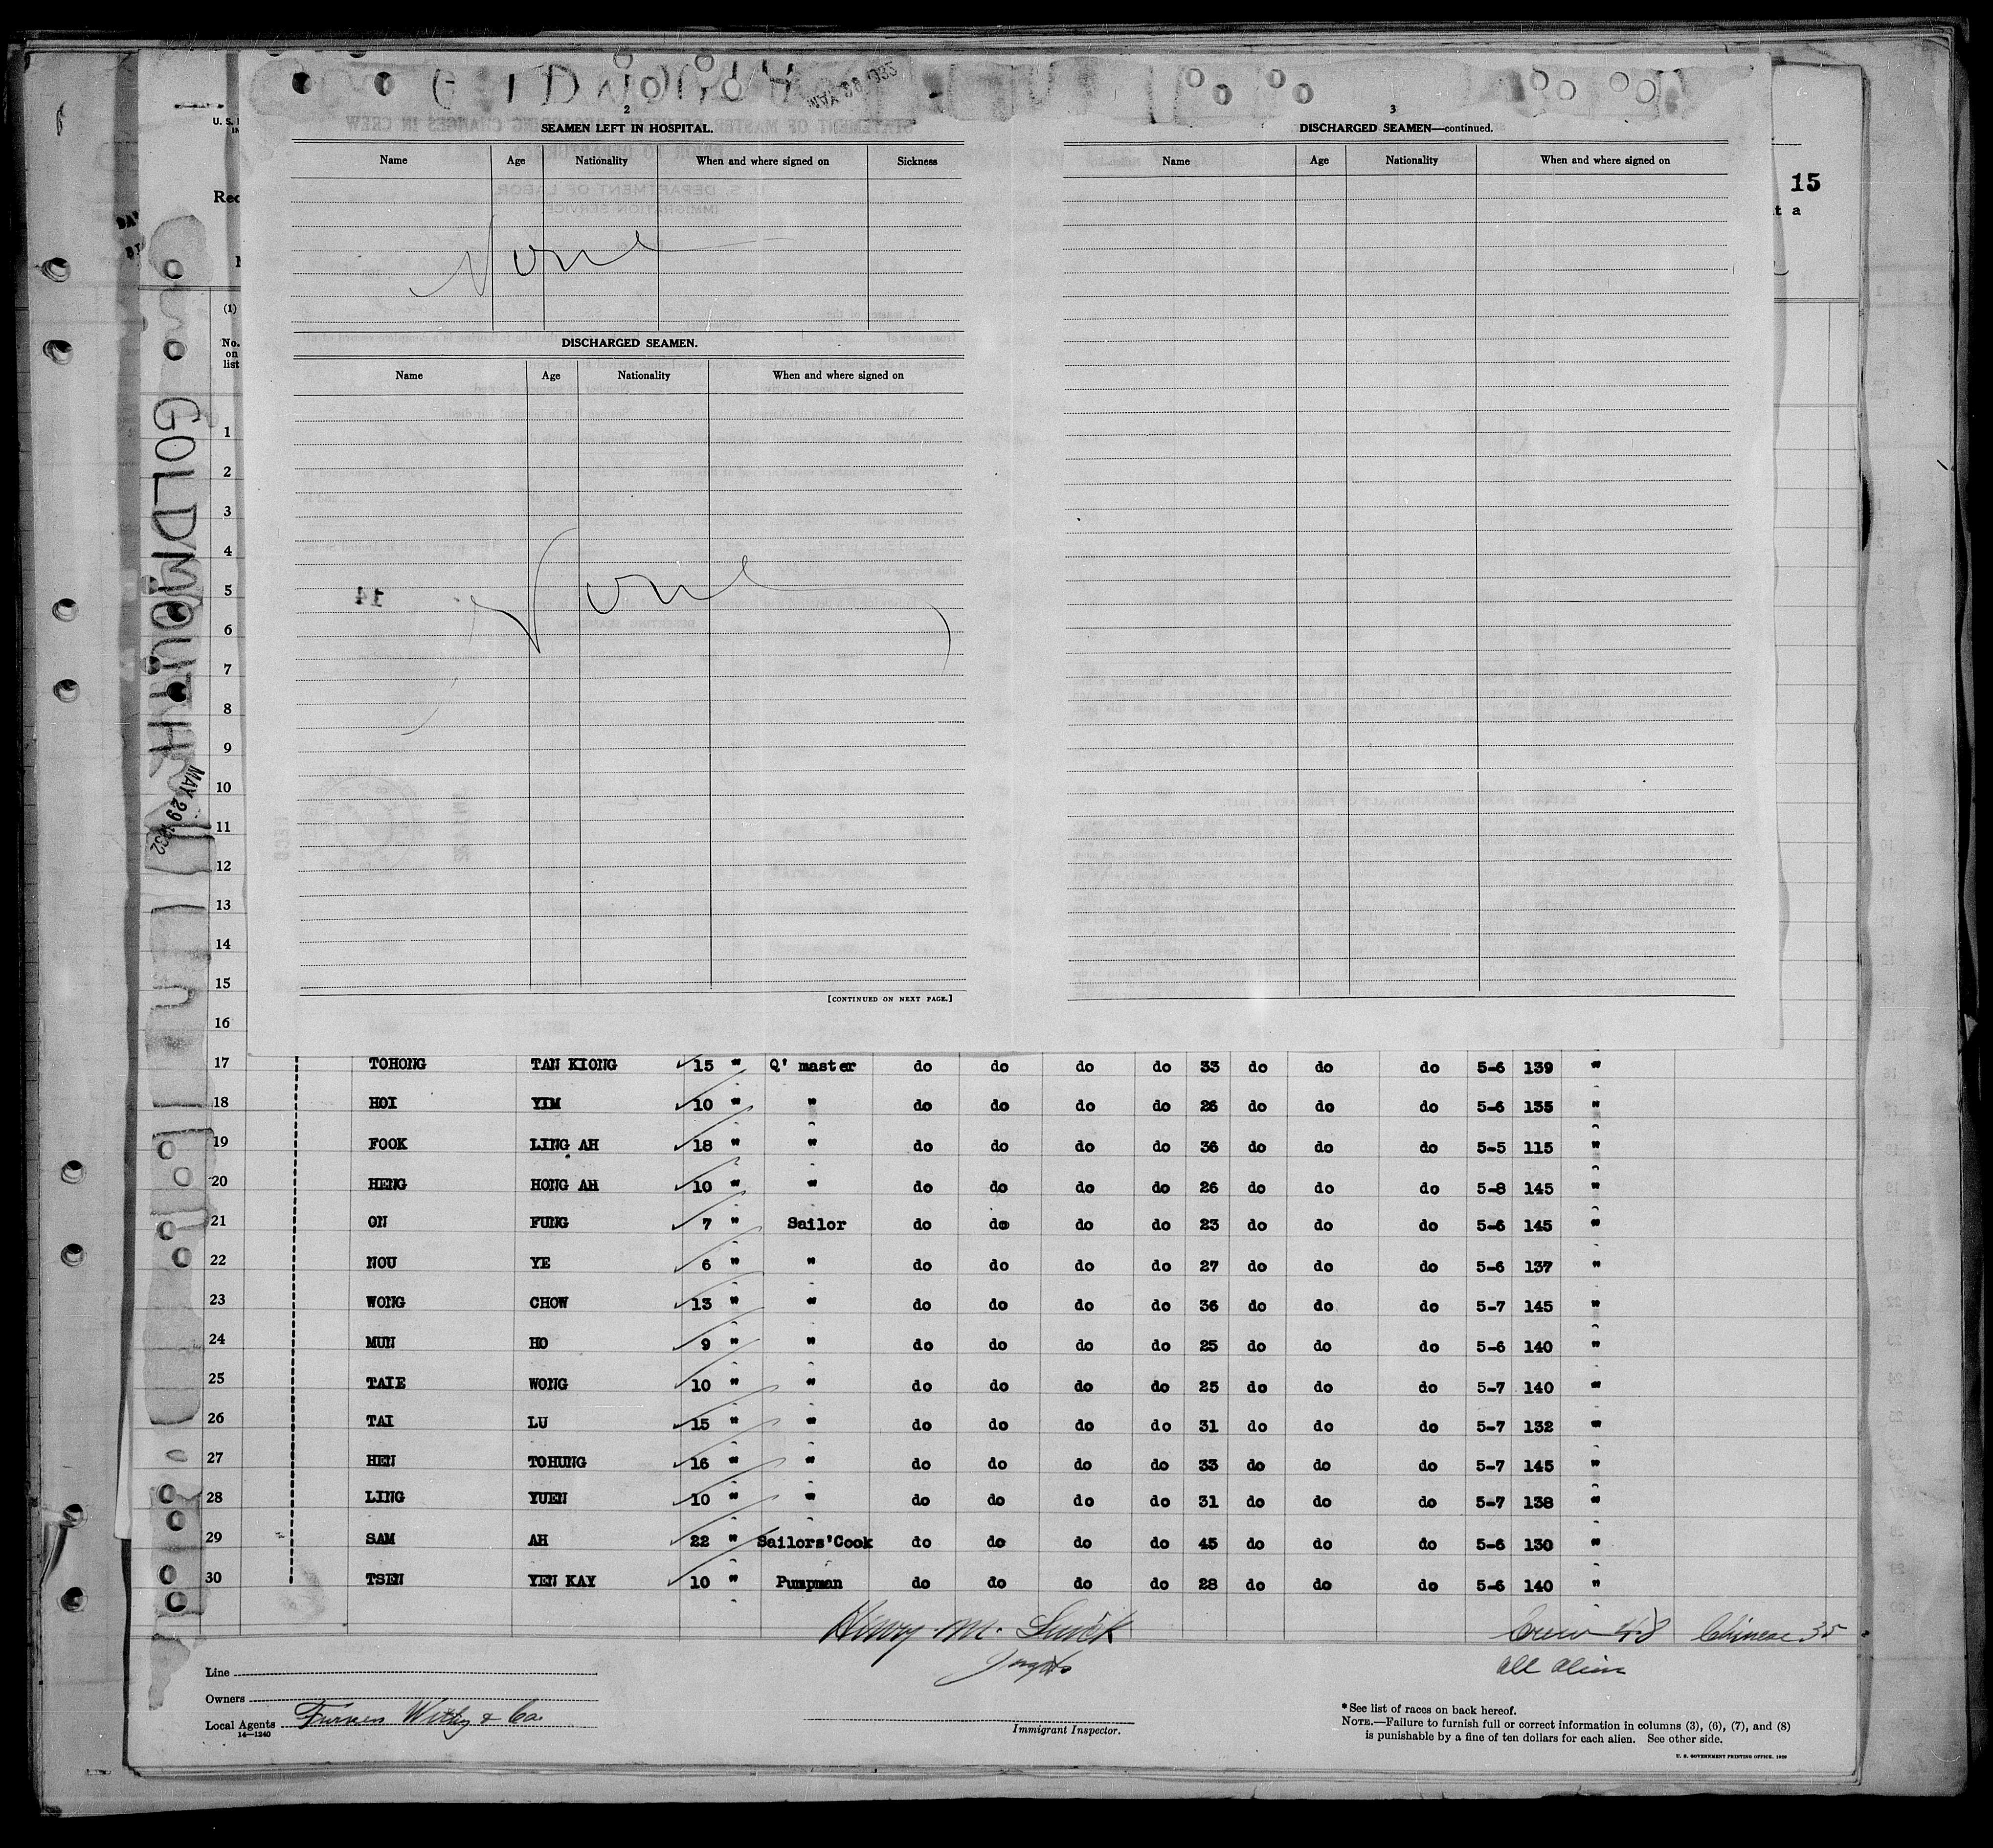 MAY 29 1932
2
SEAMEN LEFT IN HOSPITAL.
Name Age Nationality When and where signed on Sickness
None
DISCHARGED SEAMEN.
Name Age Nationality When and where signed on
None
14
[CONTINUED ON NEXT PAGE.]
3
DISCHARGED SEAMEN—continued.
Name Age Nationality When and where signed on
15
U. S.
Rec
(1)
No. on list
GOLDMOUTH
MAY 29 1932
1
2
3
4
5
6
7
8
9
10
11
12
13
14
15
16
17 TOHONG TAN KIONG 15 " Q' master do do do do 33 do do do 5-6 139 "
18 HOI YIM 10 " " do do do do 26 do do do 5-6 135 "
19 FOOK LING AH 18 " " do do do do 36 do do do 5-5 115 "
20 HENG HONG AH 10 " " do do do do 26 do do do 5-8 145 "
21 ON FUNG 7 " Sailor do do do do 23 do do do 5-6 145 "
22 NOU YE 6 " " do do do do 27 do do do 5-6 137 "
23 WONG CHOW 13 " " do do do do 36 do do do 5-7 145 "
24 MUN HO 9 " " do do do do 25 do do do 5-6 140 "
25 TAIE WONG 10 " " do do do do 25 do do do 5-7 140 "
26 TAI LU 15 " " do do do do 31 do do do 5-7 132 "
27 HEN TOHUNG 16 " " do do do do 33 do do do 5-7 145 "
28 LING YUEN 10 " " do do do do 31 do do do 5-7 138 "
29 SAM AH 22 " Sailors'Cook do do do do 45 do do do 5-6 130 "
30 TSEN YEN KAY 10 " Pumpman do do do do 28 do do do 5-6 140 "
Henry M.
Crew 48 Chinese 35
All alien
Line
Owners
Local Agents Furness Withy & Co.
14—1240
Immigrant Inspector.
*See list of races on back hereof.
NOTE.—Failure to furnish full or correct information in columns (3), (6), (7), and (8)
is punishable by a fine of ten dollars for each alien. See other side.
U. S. GOVERNMENT PRINTING OFFICE. 1929